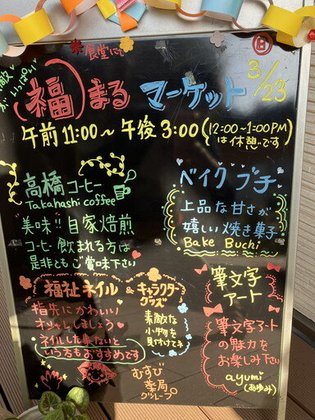 食堂にて
(福)まる マーケット
3/23(日)
午前11:00〜午後3:00
(12:00〜1:00PM
は休憩です)
高橋コーヒー
Takahashi coffee
美味!!自家焙煎
コーヒー飲まれる方は
是非ともご賞味下さい
ベイク ブチ
上品な甘さが
嬉しい焼き菓子
Bake Buchi
福祉ネイル & キャラクターグッズ
指先にかわいい
オシャレしましょう
ネイルした事ないと
いう方もおすすめです
素敵な
小物を
見付けて
むすび
薬局
グループ
筆文字
アート
筆文字アート
の魅力を
お楽しみ下さい
ayumi
(あゆみ)